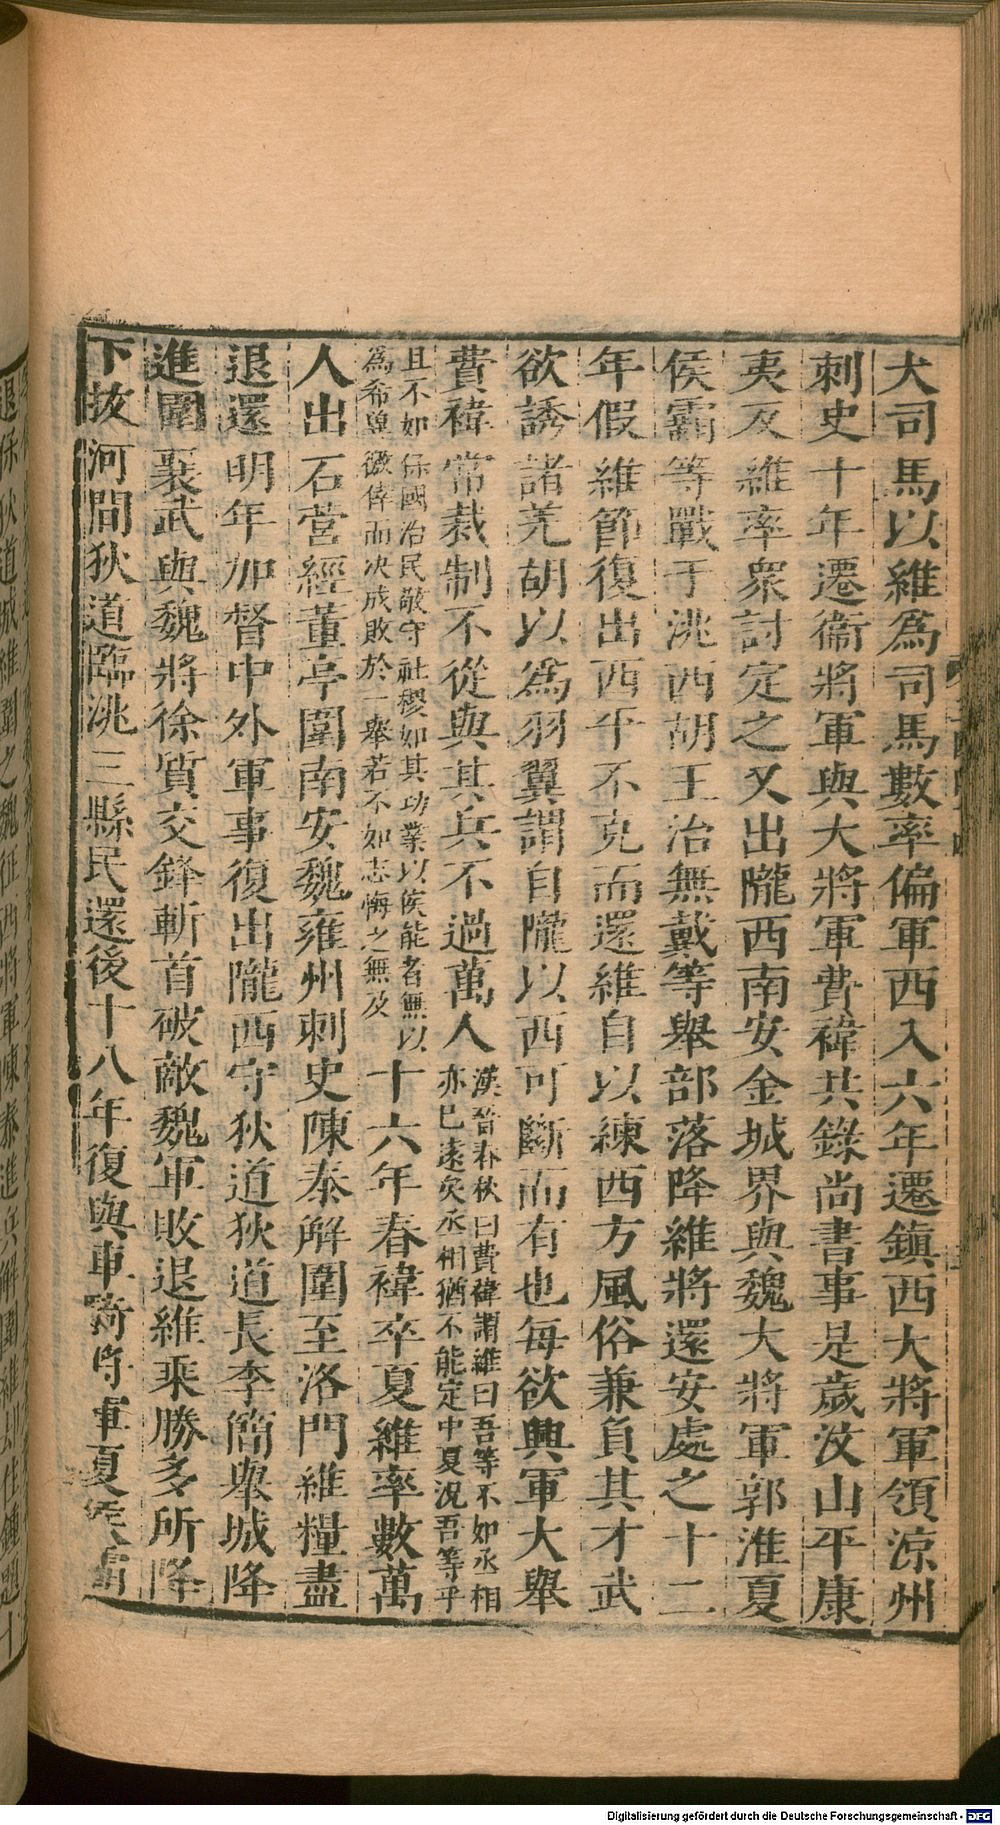 大司馬以維爲司馬數率偏軍西入六年遷鎭西大將軍領涼州
刺史十年遷衞將軍與大將軍費禕共錄尚書事是歲汶山平康
夷反維率衆討定之又出隴西南安金城界與魏大將軍郭淮夏
侯霸等戰于洮西胡王治無戴等舉部落降維將還安處之十二
年假維節復出西平不克而還維自以練西方風俗兼負其才武
欲誘諸羌胡以爲羽翼謂自隴以西可斷而有也每欲興軍大舉
費禕常裁制不從與其兵不過萬人
漢晉春秋曰費禕謂維曰吾等不如丞相
亦已遠矣丞相猶不能定中夏況吾等乎
且不如保國治民敬守社稷如其功業以俟能者無以
爲希冀徼倖而决成敗於一舉若不如志悔之無及
十六年春禕卒夏維率數萬
人出石營經董亭圍南安魏雍州刺史陳泰解圍至洛門維糧盡
退還明年加督中外軍事復出隴西守狄道狄道長李簡舉城降
進圍襄武與魏將徐質交鋒斬首破敵魏軍敗退維乘勝多所降
下拔河間狄道臨洮三縣民還後十八年復與車騎將軍夏侯霸
Digitalisierung gefördert durch die Deutsche Forschungsgemeinschaft - DFG